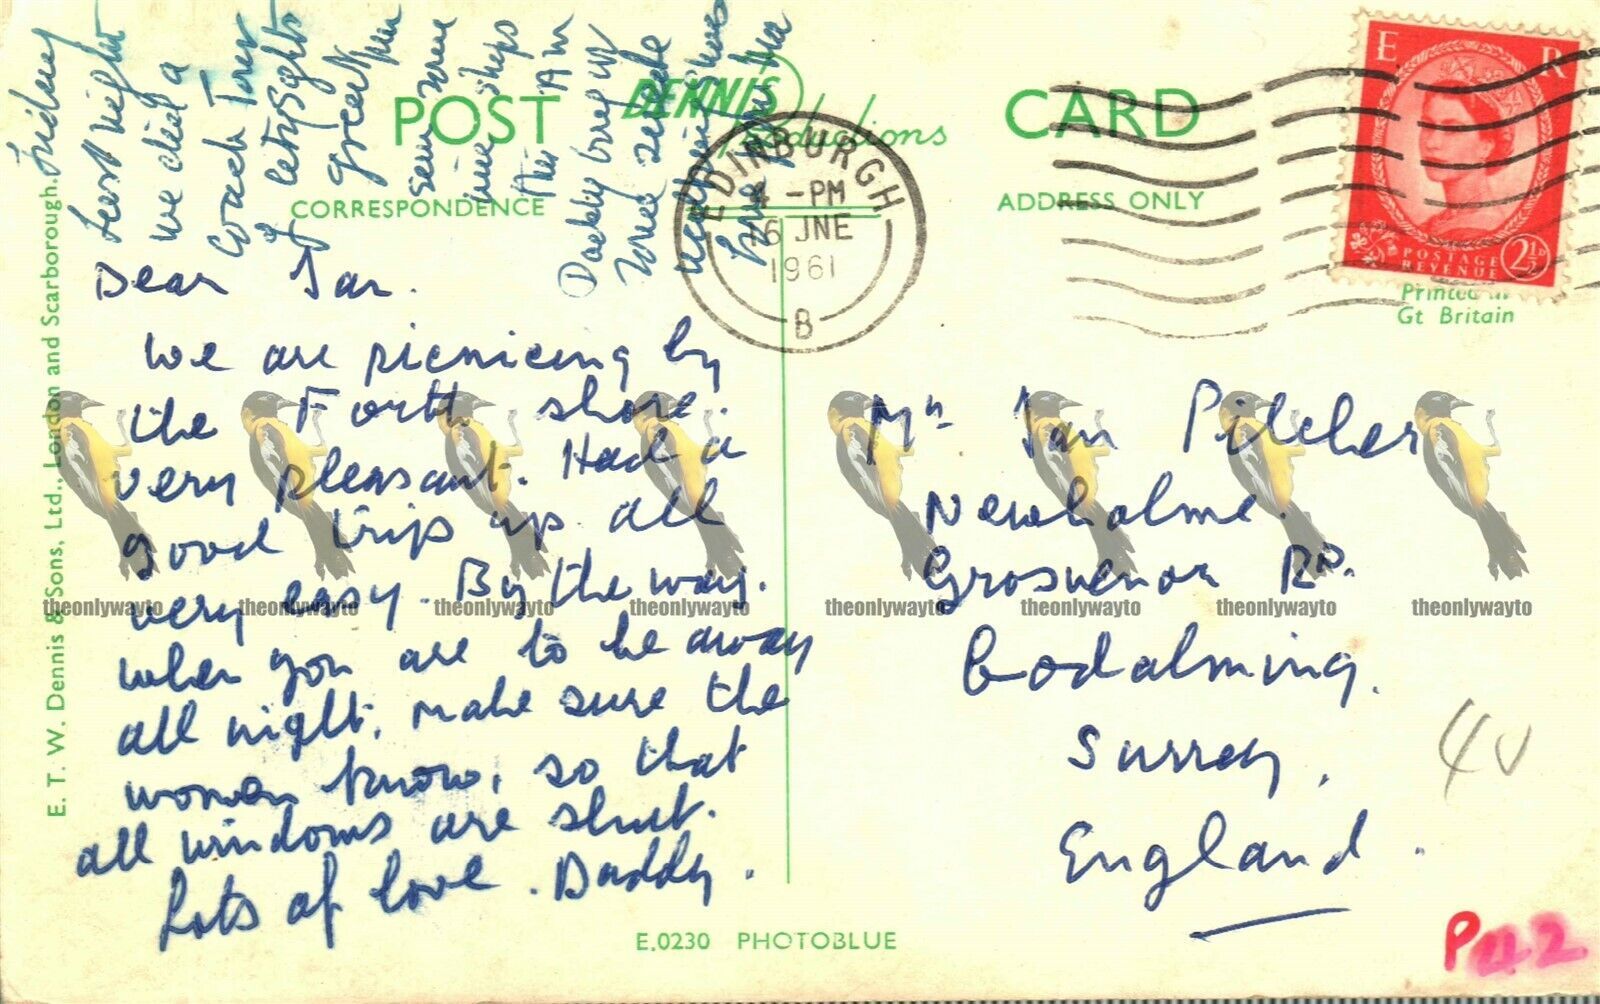 Friday
Last night
we did a
Coach Tour
of city sights
seen some
Daddy
POST CARD
DENNIS
Productions
CORRESPONDENCE
ADDRESS ONLY
EDINBURGH
4 - PM
16 JNE
1961
B
E R
POSTAGE
REVENUE
2½D
Printed in
Gt Britain
Dear Jan.
We are picnicing by
the Forth shore.
very pleasant. Had a
good trip up all
very easy. By the way.
when you are to be away
all night, make sure the
woman know, so that
all windows are shut.
Lots of love. Daddy.
Mr Jan Pilcher
Newholme.
Grosvenor RD.
Godalming.
Surrey,
England.
40
P42
E. T. W. Dennis & Sons, Ltd., London and Scarborough.
E.0230 PHOTOBLUE
theonlywayto theonlywayto theonlywayto theonlywayto theonlywayto theonlywayto theonlywayto theonlywayto